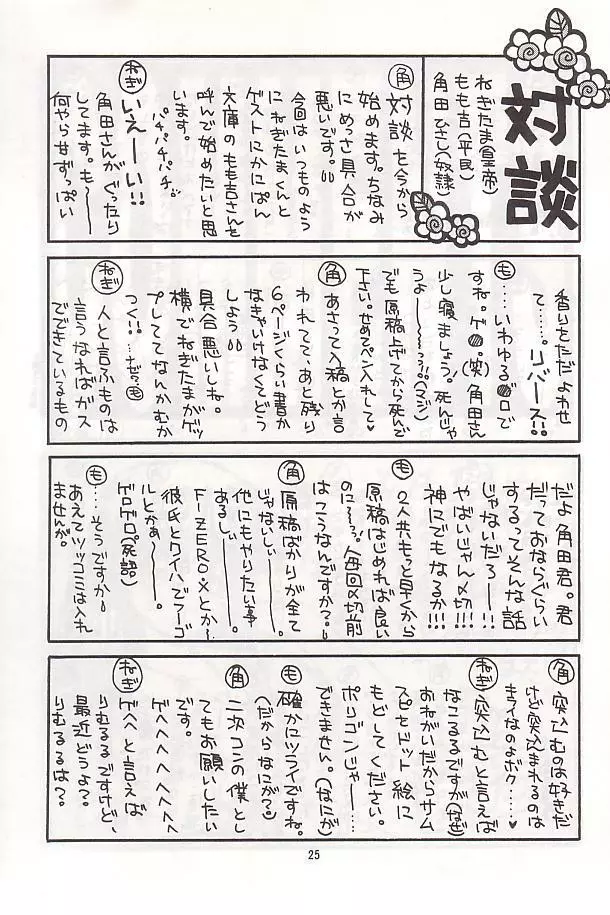 対談
ねぎたま(皇帝)
もも吉(平民)
角田 ひさし(奴隷)
角 対談を今から
始めます。ちなみ
にめっさ具合が
悪いです。
今回はいつものよう
にねぎたまくんと
ゲストにかにぱん
文庫のもも吉さんを
呼んで始めたいと思
います。
パチパチパチ。
ねぎ いえーい!!
角田さんがぐったり
してます。も〜
何やらせずっぱい
香りをただよわせ
て……。リバース!!
も ……いわゆる●ロで
すね。ゲ●。(笑)角田さん
少し寝ましょう!死んじゃ
うよ〜っっ!?(マジ)
でも原稿上げてから死んで
下さい。せめてペン入れして♥
角 あさって入稿とか言
われてて、あと残り
6ページくらい書か
なきゃいけなくてどう
しよう
具合悪いしね。
横でねぎたまがゲッ
プしててなんかむか
つく!!…なぜっも
ねぎ 人と言ふものは
言うなればガス
でできているもの
だよ角田君。君
だっておならぐらい
するってそんな話
じゃないだろー!!
やばいじゃん〆切!!
神にでもなるか!!!
も 2人共もっと早くから
原稿はじめれば良い
のに〜っっ!毎回〆切前
はこうなんですか?
角 原稿ばかりが全て
じゃないしぃ〜。
他にもやりたい事
あるしぃ〜。
F-ZERO・Xとか〜
彼氏とクイハでフーゴ
ルとかぁ〜。
ゲロゲロ。(死語)
も ……そうですか
あえてツッコミは入れ
ませんが。
角 突込むのは好きだ
けど突込まれるのは
キライなのよボク……♥
ねぎ 突込むと言えば
なこるるですが(なぜ)
おねがいだからサム
スピをドット絵に
もどしてください。
ポリゴンじゃ……
できません。(なにが)
も 確かにツライですね。
(だからなにが?)
角 二次コンの僕とし
てもお願いしたい
です。
ゲヘヘヘヘヘヘヘ
ねぎ ゲヘヘと言えば
りむるるですけど、
最近どうよ?
りむるるは?
25